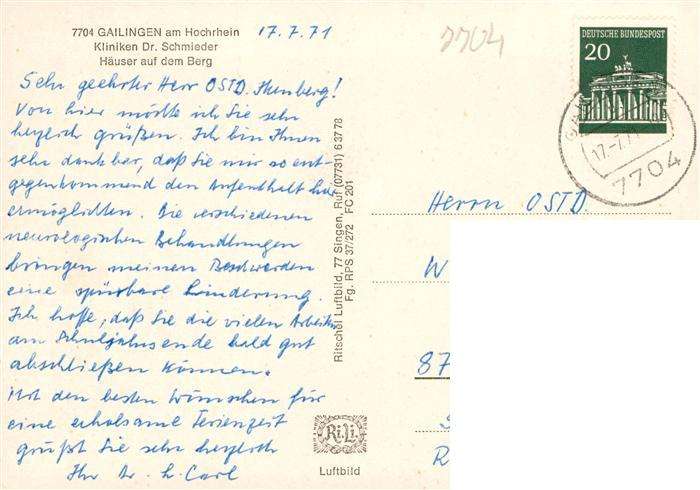 7704 GAILINGEN am Hochrhein
Kliniken Dr. Schmieder
Häuser auf dem Berg
17.7.71
Sehr geehrter Herr OSTD. !
Von hier möchte ich Sie sehr
herzlich grüßen. Ich bin Ihnen
sehr dankbar, daß Sie mir so ent-
gegenkommend den Aufenthalt hier
ermöglichten. Die verschiedenen
neurologischen Behandlungen
bringen meinen Beschwerden
eine spürbare Linderung.
Ich hoffe, daß Sie die vielen Arbeiten
am Schuljahresende bald gut
abschließen können.
Mit den besten Wünschen für
eine erholsame Ferienzeit
grüßt Sie sehr herzlich
Ihr Dr. H. Carl
Ritschel Luftbild, 77 Singen, Ruf (07731) 6 37 78
Fg. RPS 37/272 FC 201
Ri.Li.
Luftbild
7704
DEUTSCHE BUNDESPOST
20
17.-7.71
7704
Herrn OSTD.
W
87
R